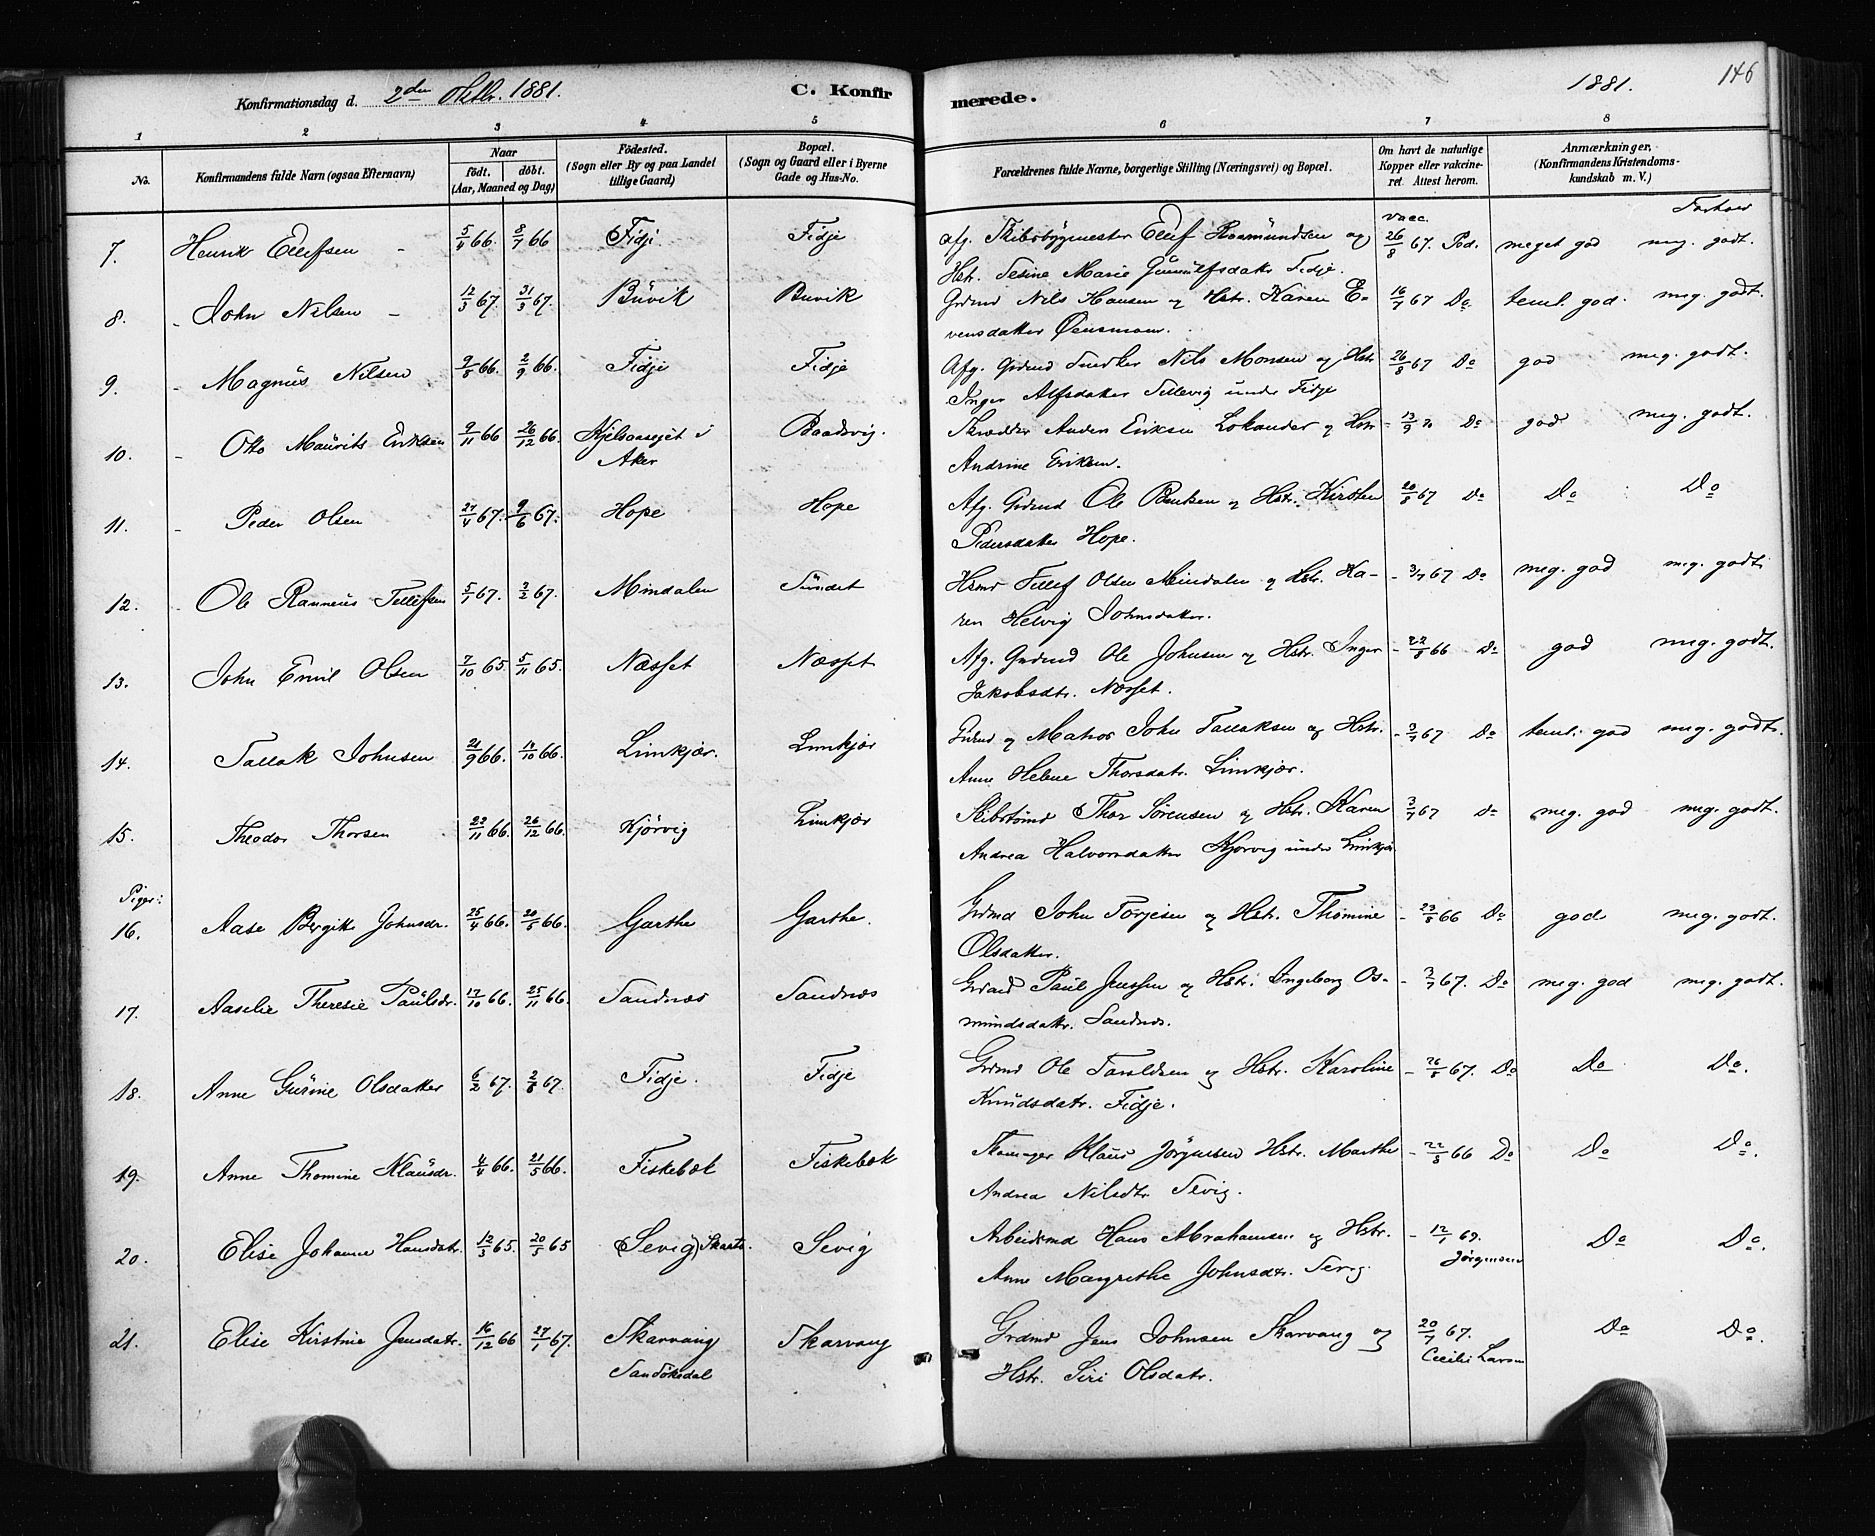 146
Konfirmationsdag d. 2den Oktbr. 1881. C. Konfirmerede. 1881.
1 2 3 4 5 6 7 8
No.
Konfirmandens fulde Navn (ogsaa Efternavn)
Naar
født. døbt.
(Aar, Maaned og Dag)
Fødested.
(Sogn eller By og paa Landet
tillige Gaard)
Bopæl.
(Sogn og Gaard eller i Byerne
Gade og Hus-No.
Forældrenes fulde Navne, borgerlige Stilling (Næringsvei) og Bopæl.
Om havt de naturlige
Kopper eller vakcine-
ret. Attest herom.
Anmærkninger,
(Konfirmandens Kristendoms-
kundskab m. V.)
Forhold
vacc.
7. Henrik Ellefsen 5/4 66. 8/7 66 Fidje Fidje afg. Skibsbygmester Ellef Roamundsen og 26/8 67. Ped. meget god meg. godt.
Hstr. Tesine Marie Gunnulfsdatter Fidje.
8. John Nilsen 12/3 67. 31/3 67. Buvik Buvik Grdmd Nils Hansen og Hstr. Karen E- 16/7 67 Do teml. god. meg. godt.
vensdatter
9. Magnus Nilsen 9/8 66. 2/9 66. Fidje Fidje Afg. Grdmd Snedker Nils Monsen og Hstr 26/8 67 Do god meg. godt.
Inger Alfsdatter Tellevig under Fidje
10. Otto Maurits Eriksen 9/11 66 26/12 66. Kjelsaasejet i Baadsvig. Skrædder Anders Eriksen Lokander og Hstr - 13/9 70 Do god meg. godt.
Aker
Andrine Eriksen.
11. Peder Olsen 27/4 67. 9/6 67. Hope Hope Afg. Grdmd Ole Bentsen og Hstr. Kirsten 20/8 67 Do Do Do
Pedersdatter Hope.
12. Ole Rannius Tellefsen 5/1 67. 3/2 67. Mindalen Sundet Hsmd Tellef Olsen Mindalen og Hstr. Ka- - 3/7 67 Do meg. god meg. godt
ren Helvig Johnsdatter.
13. John Emil Olsen 7/10 65 5/11 65. Næsset Næsset Afg. Grdmd Ole Johnsen og Hstr. Inger - 22/8 66 Do god meg. godt.
Jakobsdtr. Næsset.
14. Tallak Johnsen 21/9 66. 14/10 66. Limkjær. Limkjær Grdmd og Matros John Tallaksen og Hstr. - 3/7 67 Do teml. god meg. godt.
Anne Helene Thorsdatr. Limkjær.
15. Theodor Thorsen 22/11 66. 26/12 66. Kjørvig Limkjær Skibstømd Thor Sørensen og Hstr. Karen 3/7 67 Do meg. god meg. godt.
Andrea Halvorsdatter Kjørvig under Limkjær
Piger:
16. Aase Bergitte Johnsdr. 25/4 66. 20/5 66. Garthe Garthe. Grdmd John Torjesen og Hstr. Thomine - 23/8 66 Do god meg. godt.
Olsdatter.
17. Aaselie Theresie Paulsdr. 17/10 66. 25/11 66. Sandnæs Sandnæs Grdmd Paul Jenssen og Hstr. Ingeborg Os- - 3/7 67. Do meg. god meg. godt.
mundsdatr. Sandnæs.
18. Anne Gurine Olsdatter 6/2 67. 2/8 67. Fidje. Fidje Grdmd Ole Taraldsen og Hstr. Karoline - 26/8 67. Do Do Do.
Knudsdatr. Fidje.
19. Anne Thomine Klausdr. 4/4 66. 21/5 66. Fiskebæk Fiskebæk Klaus Jørgensen Hstr. Marthe - 22/8 66 Do Do Do.
Andrea Nilsdtr Sevig.
20. Elise Johanne Hansdatr. 12/3 65. 20/5 65 (Sevig) Sevig Arbeidsmd Hans Abrahamsen og Hstr. - 12/1 69. Do Do.
Jørgensen
Anne Margrethe Johnsdtr. Sevig.
21. Elise Kirstine Jensdatr. 16/12 66 27/1 67. Skarvang Skarvang Grdmd Jens Johnsen Skarvang og 20/7 67. Do Do.
Sandøkedal
Cecilie Larsen
Hstr. Siri Olsdatr.